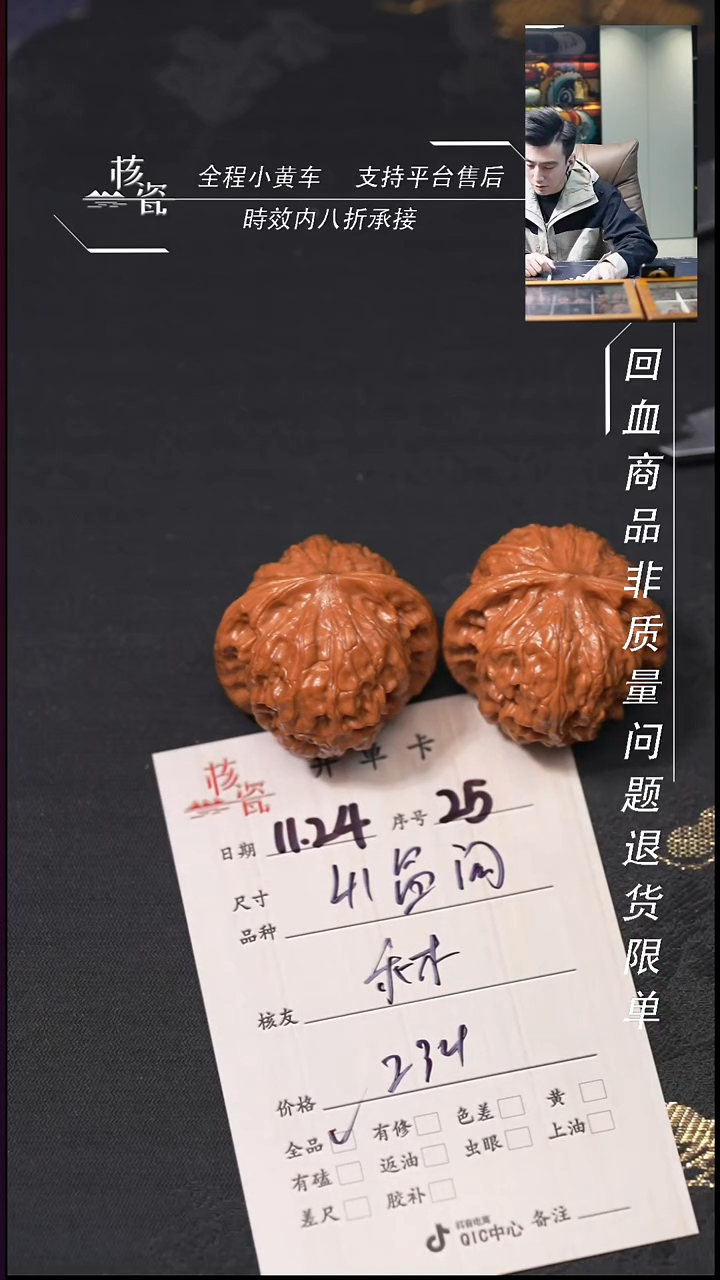 核瓷
全程小黄车 支持平台售后
時效内八折承接
回血商品非质量问题退货限单
弃单卡
核瓷
日期 11.24 序号 25
尺寸 41
品种
核友
价格 234
全品 ✓ 有修 色差 黄
有磕 返油 虫眼 上油
差尺 胶补
抖音电商
QIC中心 备注